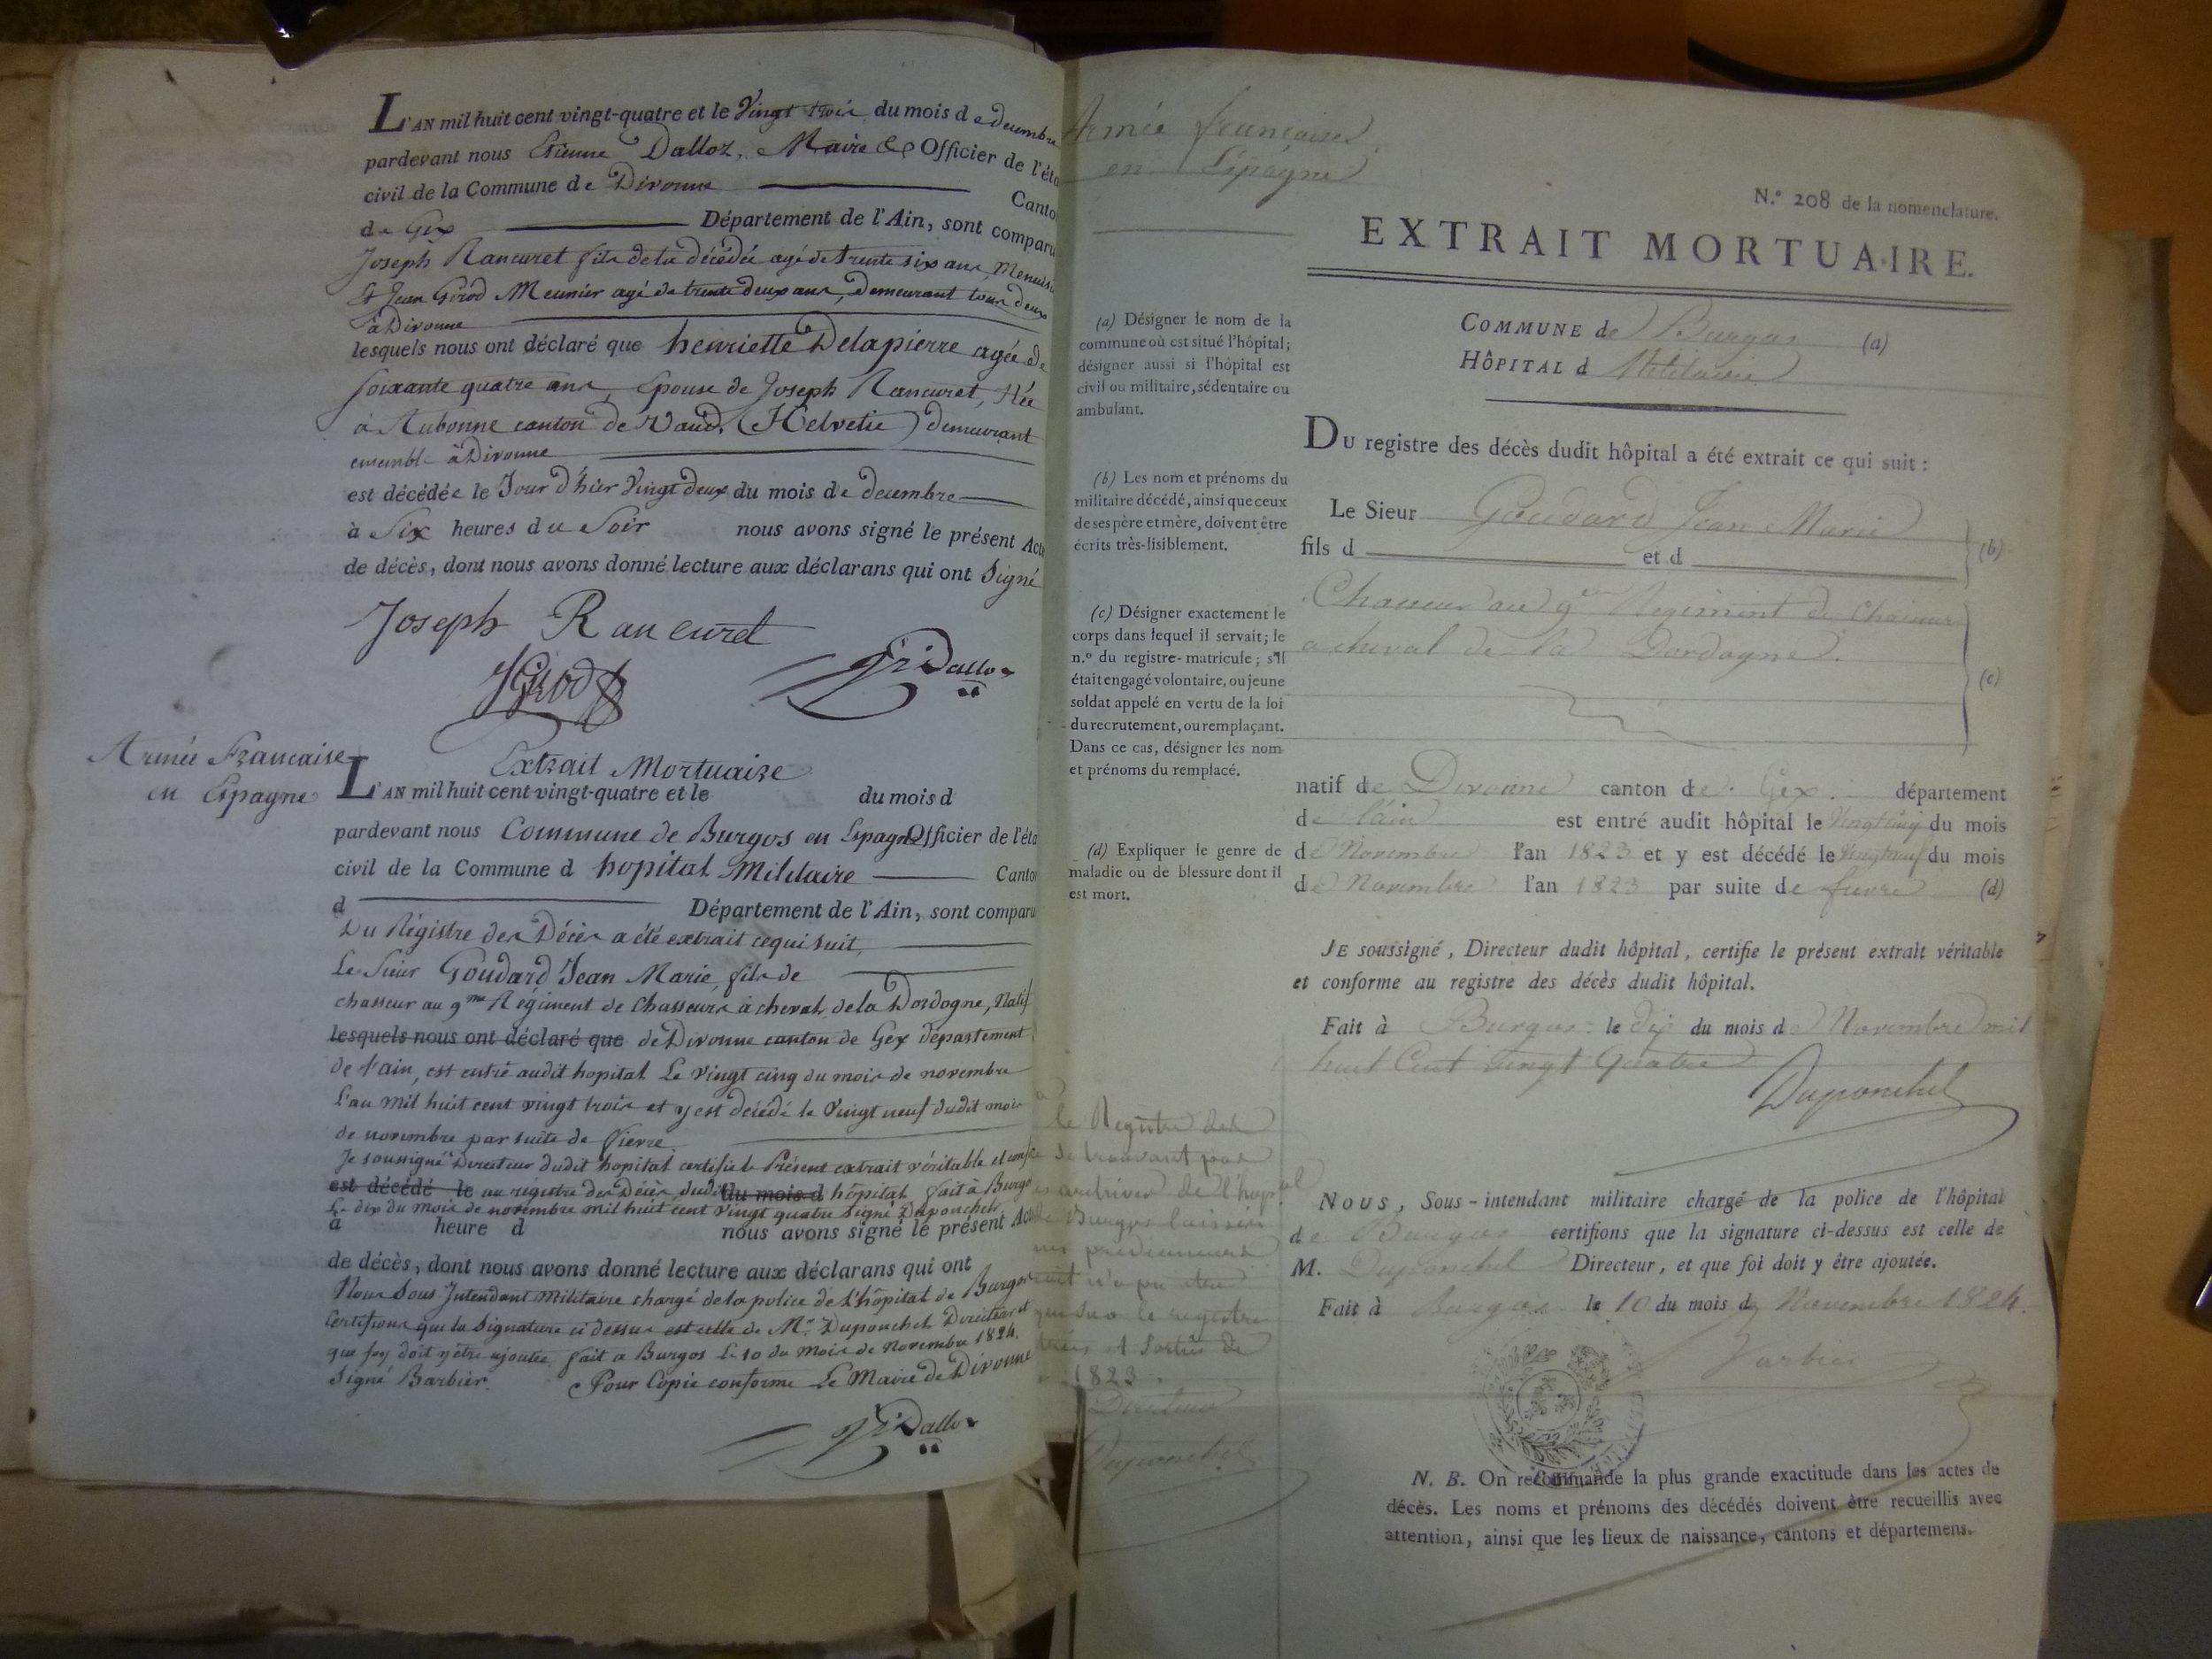 L'AN mil huit cent vingt-quatre et le Vingt trois du mois de decembre
pardevant nous Etienne Dalloz, Maire & Officier de l'éta
civil de la Commune de Divonne Canto
de Gex Département de l'Ain, sont comparu
Joseph Rancuret fils de la décédée agé de trente six ans, Menuisi
Et Jean Girod Meunier agé de trente deux ans, Demeurant tous deux
à Divonne
lesquels nous ont déclaré que henriette Delapierre agée de
soixante quatre ans, Epouse de Joseph Rancuret, Née
à Aubonne canton de Vaud, (Helvetie) demeurant
ensemble à Divonne
est décédée le Jour d'hier Vingt deux du mois de decembre
à Six heures du Soir nous avons signé le présent Act
de décès, dont nous avons donné lecture aux déclarans qui ont Signé
Joseph Rancuret
JGirod
Dalloz
Armée Francaise
en Espagne
Extrait Mortuaire
L'AN mil huit cent vingt-quatre et le du mois d
pardevant nous Commune de Burgos en Espagne Officier de l'éta
civil de la Commune d hopital Militaire Canto
d Département de l'Ain, sont comparu
Du Régistre des Décès a été extrait ce qui suit,
Le Sieur Goudard Jean Marie, fils de
chasseur au 9me Régiment de Chasseurs à cheval de la Dordogne, Natif
lesquels nous ont déclaré que de Divonne canton de Gex département
de l'ain, est entré audit hopital Le vingt cinq du mois de novembre
L'an mil huit cent vingt trois et y est décédé le Vingt neuf dudit mois
de novembre par suite de fievre
Je soussigné Directeur dudit hopital certifie le Présent extrait véritable et conf
est décédé le au régistre des Décès dudit du mois d hôpital fait à Burgos
Le dix du mois de novembre mil huit cent vingt quatre Signé Duponchel
à heure d nous avons signé le présent Act
de décès, dont nous avons donné lecture aux déclarans qui ont
Nous Sous Intendant Militaire chargé de la police de l'hôpital de Burgos
Certifions que la Signature ci dessus est celle de Mr. Duponchel Directeur et
que foy doit y être ajoutée fait a Burgos Le 10 du Mois de Novembre 1824.
Signé Barbier. Pour Copie conforme Le Maire de Divonne
Dalloz
Armée française
en Espagne
N.º 208 de la nomenclature.
EXTRAIT MORTUAIRE.
COMMUNE de Burgos (a)
HÔPITAL d Militaire
(a) Désigner le nom de la
commune où est situé l'hôpital;
désigner aussi si l'hôpital est
civil ou militaire, sédentaire ou
ambulant.
DU registre des décès dudit hôpital a été extrait ce qui suit :
(b) Les nom et prénoms du
militaire décédé, ainsi que ceux
de ses père et mère, doivent être
écrits très-lisiblement.
Le Sieur Goudard Jean Marie
fils d et d (b)
(c) Désigner exactement le
corps dans lequel il servait; le
n.º du registre-matricule; s'il
était engagé volontaire, ou jeune
soldat appelé en vertu de la loi
du recrutement, ou remplaçant.
Dans ce cas, désigner les nom
et prénoms du remplacé.
Chasseur au 9em Regiment de Chasseurs
a cheval de la Dordogne.
(c)
natif de Divonne canton de Gex. département
de l'ain est entré audit hôpital le Vingt cinq du mois
de Novembre l'an 1823 et y est décédé le Vingt neuf du mois
de Novembre l'an 1823 par suite de fievre (d)
(d) Expliquer le genre de
maladie ou de blessure dont il
est mort.
JE soussigné, Directeur dudit hôpital, certifie le présent extrait véritable
et conforme au registre des décès dudit hôpital.
Fait à Burgos le dix du mois de Novembre mil
huit Cent Vingt Quatre
Duponchel
le Registre des
se trouvant pas
archives de l'hopital
de Burgos
predecesseurs
n'a pu être
que sur le registre
et Sorties de
1823.
Directeur
Duponchel
NOUS, Sous-intendant militaire chargé de la police de l'hôpital
de Burgos certifions que la signature ci-dessus est celle de
M. Duponchel Directeur, et que foi doit y être ajoutée.
Fait à Burgos le 10 du mois de Novembre 1824.
Barbier
N. B. On recommande la plus grande exactitude dans les actes de
décès. Les noms et prénoms des décédés doivent être recueillis avec
attention, ainsi que les lieux de naissance, cantons et départemens.